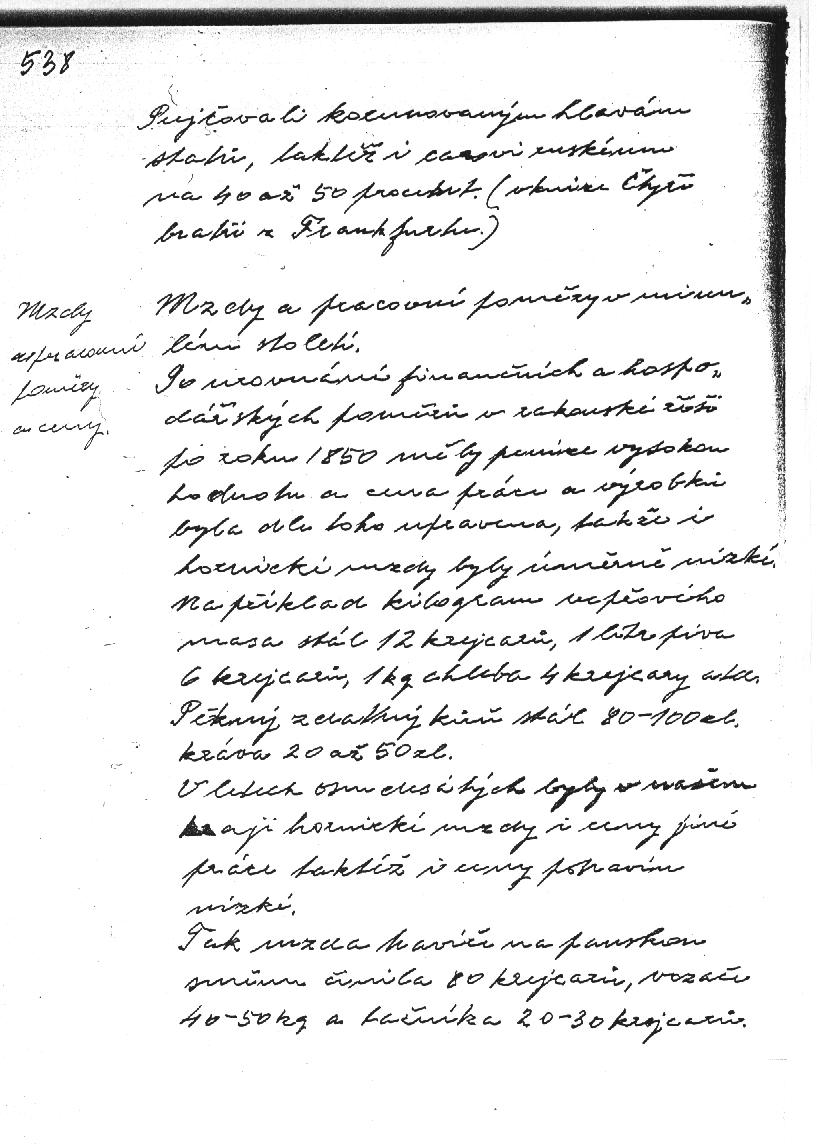 538
Pujčovali korunovaným hlavám
států, taktéž i carovi ruskému
na 40 až 50 procent. (v knize Čtyři
bratři z Frankfurtu.)
Mzdy
a pracovní
poměry
a ceny.
Mzdy a pracovní poměry v minu„
lém století.
Po urovnání finančních a hospo„
dářských poměrů v rakouské říši
po roku 1850 měly peníze vysokou
hodnotu a cena práce a výrobků
byla dle toho upravena, takže i
hornické mzdy byly úměrně nízké.
Na příklad kilogram vepřového
masa stál 12 krejcarů, 1 litr piva
6 krejcarů, 1 kg chleba 4 krejcary atd.
Pěkný zdatný kůň stál 80-100 zl.
kráva 20 až 50 zl.
V letech osmdesátých byly v našem
kraji hornické mzdy i ceny jiné
práce taktéž i ceny potravin
nízké.
Tak mzda havíře na panskou
směnu činila 80 krejcarů, vozače
40-50 kg a tačníka 20-30 krejcarů.